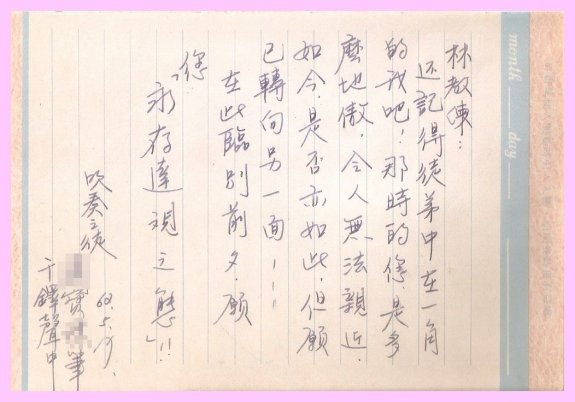 林教練：
还記得徒弟中在一角
的我吧！那時的您是多
麼地傲，令人無法親近．
如今是否亦如此，但願
已轉向另一面！——
在此臨別前夕．願
您
永存達觀之態」!!
吹奏之徒
寶 筆
62.5.
于鐸聲中
month day